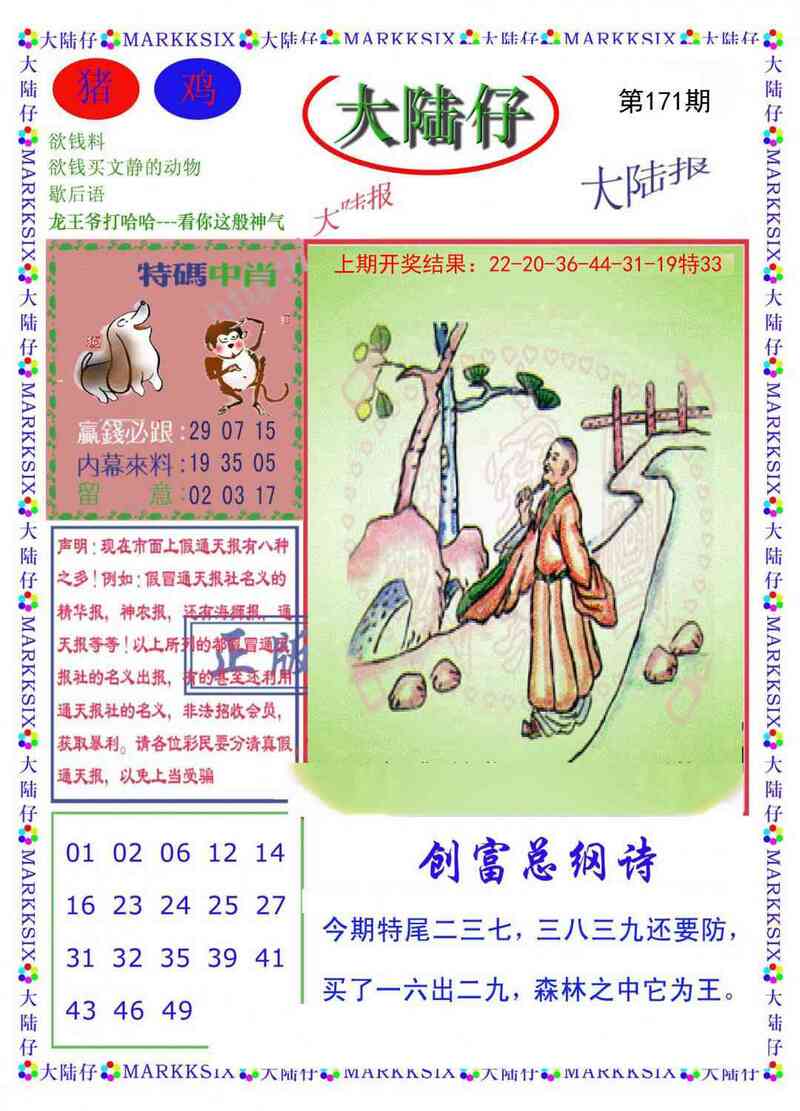 大陆仔 MARKKSIX 大陆仔 MARKKSIX 大陆仔 MARKKSIX 大陆仔 MARKKSIX 大陆仔
猪 鸡
大陆仔
第171期
欲钱料
欲钱买文静的动物
歇后语
龙王爷打哈哈---看你这般神气
大陆报
大陆报
特碼中肖
狗
赢錢必跟:29 07 15
内幕來料:19 35 05
留 意:02 03 17
上期开奖结果：22-20-36-44-31-19特33
声明：现在市面上假通天报有八种
之多！例如：假冒通天报社名义的
精华报，神农报，还有海狮报，通
天报等等！以上所列的都假冒通天
报社的名义出报，有的甚至还利用
通天报社的名义，非法招收会员，
获取暴利。请各位彩民要分清真假
通天报，以免上当受骗
正版
01 02 06 12 14
16 23 24 25 27
31 32 35 39 41
43 46 49
创富总纲诗
今期特尾二三七，三八三九还要防，
买了一六出二九，森林之中它为王。
大陆仔 MARKKSIX 大陆仔 MARKKSIX 大陆仔 MARKKSIX 大陆仔
大陆仔 MARKKSIX 大陆仔 MARKKSIX 大陆仔 MARKKSIX 大陆仔 MARKKSIX 大陆仔
大陆仔 MARKKSIX 大陆仔 MARKKSIX 大陆仔 MARKKSIX 大陆仔 MARKKSIX 大陆仔